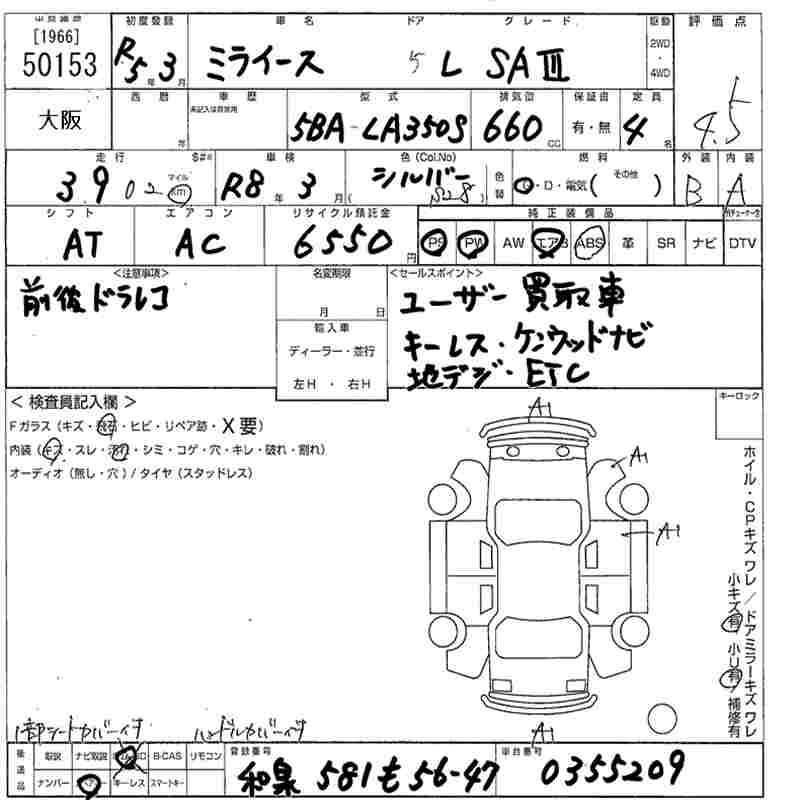 出品番号 初度登録 車名 ドア グレード 駆動 評価点
[1966]
50153 R5年3月 ミライース 5 L SAⅢ 2WD・4WD 4.5
大阪 西暦 年 車歴 未記入は自家用 型式 5BA-LA350S 排気量 660 CC 保証書 有・無 定員 4名
走行 S#※ 3.9 02 マイル km 車検 R8年3月 色(Col.No) シルバー (S28) 色替 燃料 G・D・電気( その他 ) 外装 B 内装 A
シフト AT エアコン AC リサイクル預託金 6550円 純正装備品 PS PW AW エアB ABS 革 SR ナビ DTV
<注意事項> 名変期限 <セールスポイント>
前後ドラレコ
月 日
輸入車
ディーラー・並行
左H・右H
ユーザー買取車
キーレス・ケンウッドナビ
地デジ・ETC
<検査員記入欄>
Fガラス(キズ・飛石・ヒビ・リペア跡・X要)
内装(キズ・スレ・汚れ・シミ・コゲ・穴・キレ・破れ・割れ)
オーディオ(無し・穴)/タイヤ(スタッドレス)
キーロック
A1
A1
A1
A1
ホイル・CPキズ ワレ/ドアミラーキズ ワレ
小キズ有 小U有/補修有
1部シートカバー付 ハンドルカバー付
後送品 取説 ナビ取説 B-CAS リモコン
ナンバー スペアキー キーレス スマートキー
登録番号 和泉 581 も 56-47
車台番号 0355209